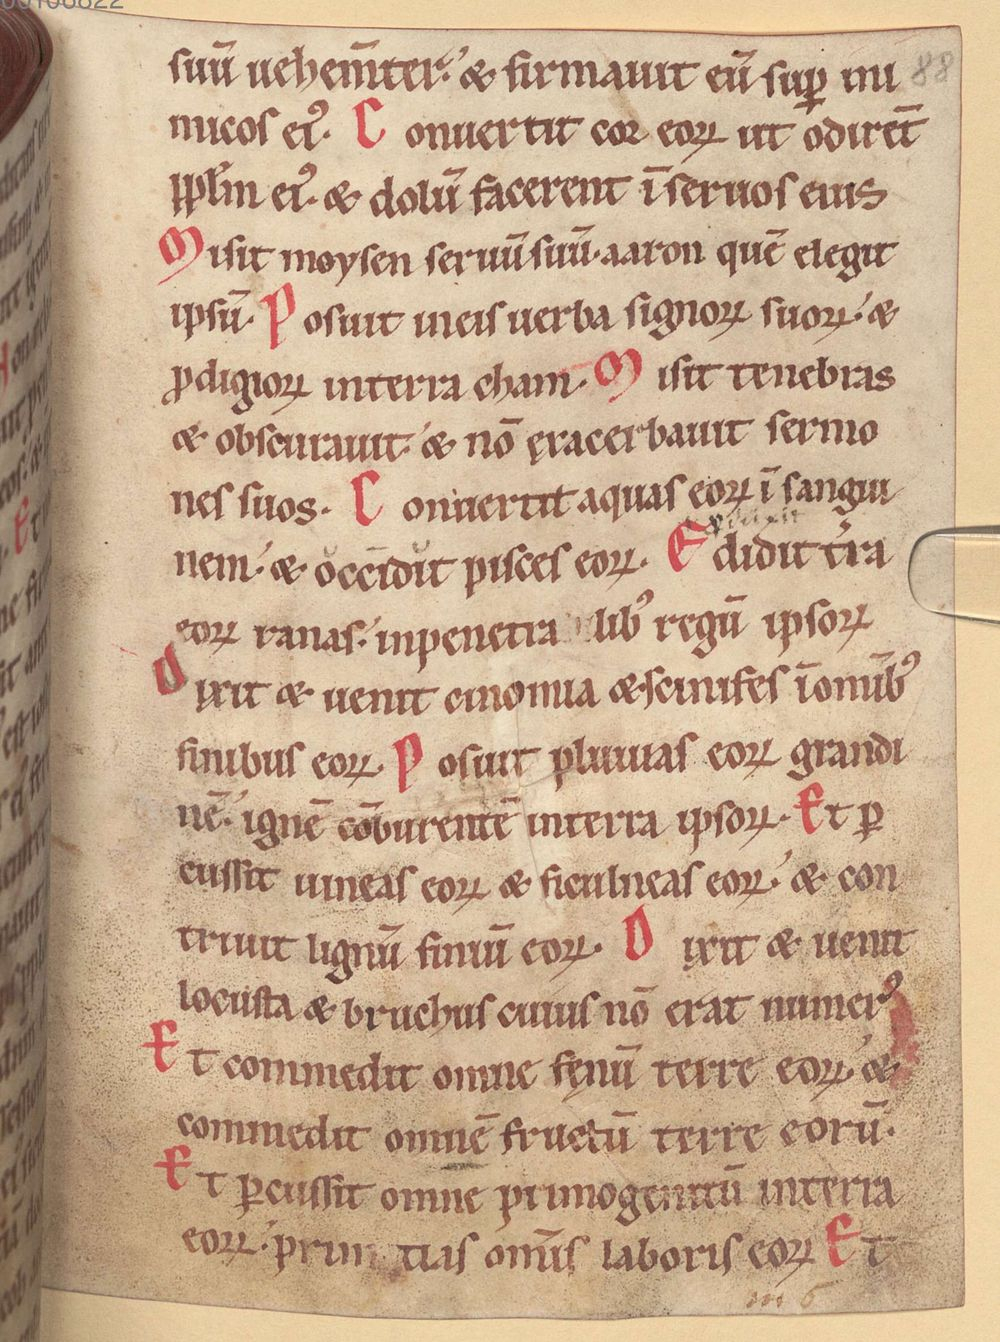 88
suū uehem̄ter.' & firmauit eū suꝑ ini
micos eiꝰ. Conuertit cor eoꝝ ut odirēt
ppl̄m eiꝰ. & dolū facerent ī seruos eius
Misit moysen seruū suū. aaron quē elegit
ipsū. Posuit ineis uerba signoꝝ suoꝝ.' &
ꝓdigioꝝ interra cham. Misit tenebras
& obscurauit.' & nō exacerbauit sermo
nes suos. Conuertit aquas eoꝝ ī sangui
nem.' & occidit pisces eoꝝ. Edidit t̄ra
eoꝝ ranas.' inpenetra libꝰ regū ipsoꝝ
Dixit & uenit cinomia & scinifes ī omībꝰ
finibus eoꝝ. Posuit pluuias eoꝝ grandi
nē.' ignē cōburentē interra ipsoꝝ. Et ꝑ
cussit uineas eoꝝ & ficulneas eoꝝ.' & con
triuit lignū finiū eoꝝ. Dixit & uenit
locusta & bruchus cuius nō erat numerꝰ
Et commedit omne fenū terre eoꝝ.' &
commedit omnē fructū terre eorū.
Et ꝑcussit omne primogenitū interra
eoꝝ.' prim tias om̄is laboris eoꝝ Et